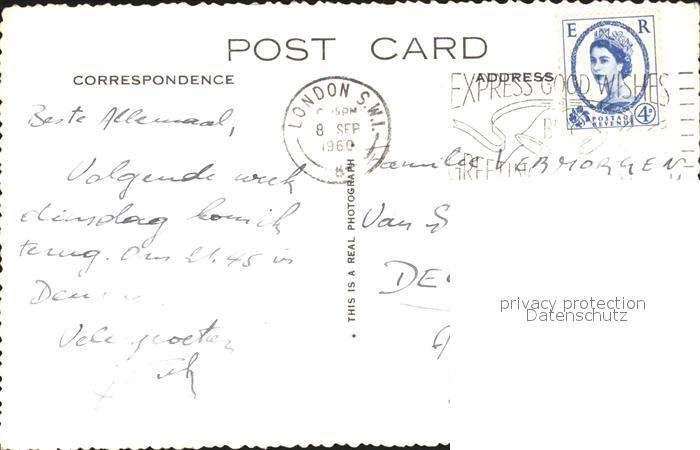 POST CARD
CORRESPONDENCE
ADDRESS
E R
POSTAGE
REVENUE
4D
LONDON S.W.1.
15PM
8 SEP
1960
EXPRESS GOOD WISHES
BY
GREETING
Beste Allemaal,
Volgende week
dinsdag kom ik
terug. Om 21.45 in
Den
Vele groeten
Familie VERMORGEN
Van
DE
THIS IS A REAL PHOTOGRAPH
privacy protection
Datenschutz